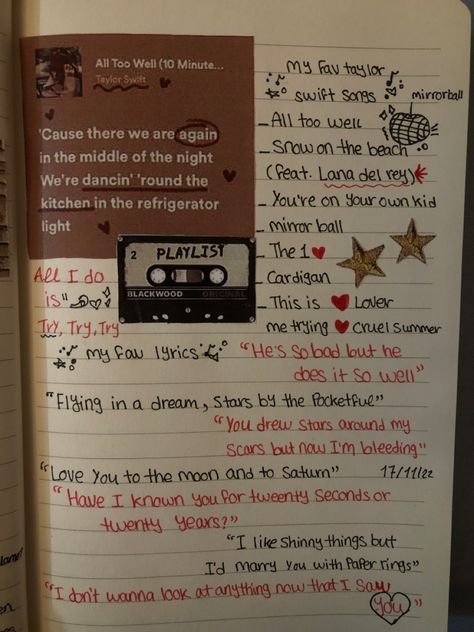 All Too Well (10 Minute...
Taylor Swift
'Cause there we are again
in the middle of the night
We're dancin' 'round the
kitchen in the refrigerator
light
2 PLAYLIST
BLACKWOOD ORIGINAL
My Fav taylor
swift songs
mirrorball
_ All too well
_ Snow on the beach
(feat. Lana del rey)
_ You're on your own kid
_ mirror ball
_ The 1
_ Cardigan
_ This is ♥ Lover
me trying ♥ Cruel summer
All I do
is"
Try, Try, Try
My fav lyrics
"He's so bad but he
does it so well"
"Flying in a dream, stars by the Pocketful"
"You drew stars around my
scars but now I'm bleeding"
"Love you to the moon and to Saturn"
17/11/22
"Have I known you for tweenty seconds or
twenty years?"
"I like shinny things but
I'd marry you with Paper rings"
"I don't wanna look at anything now that I saw
You"